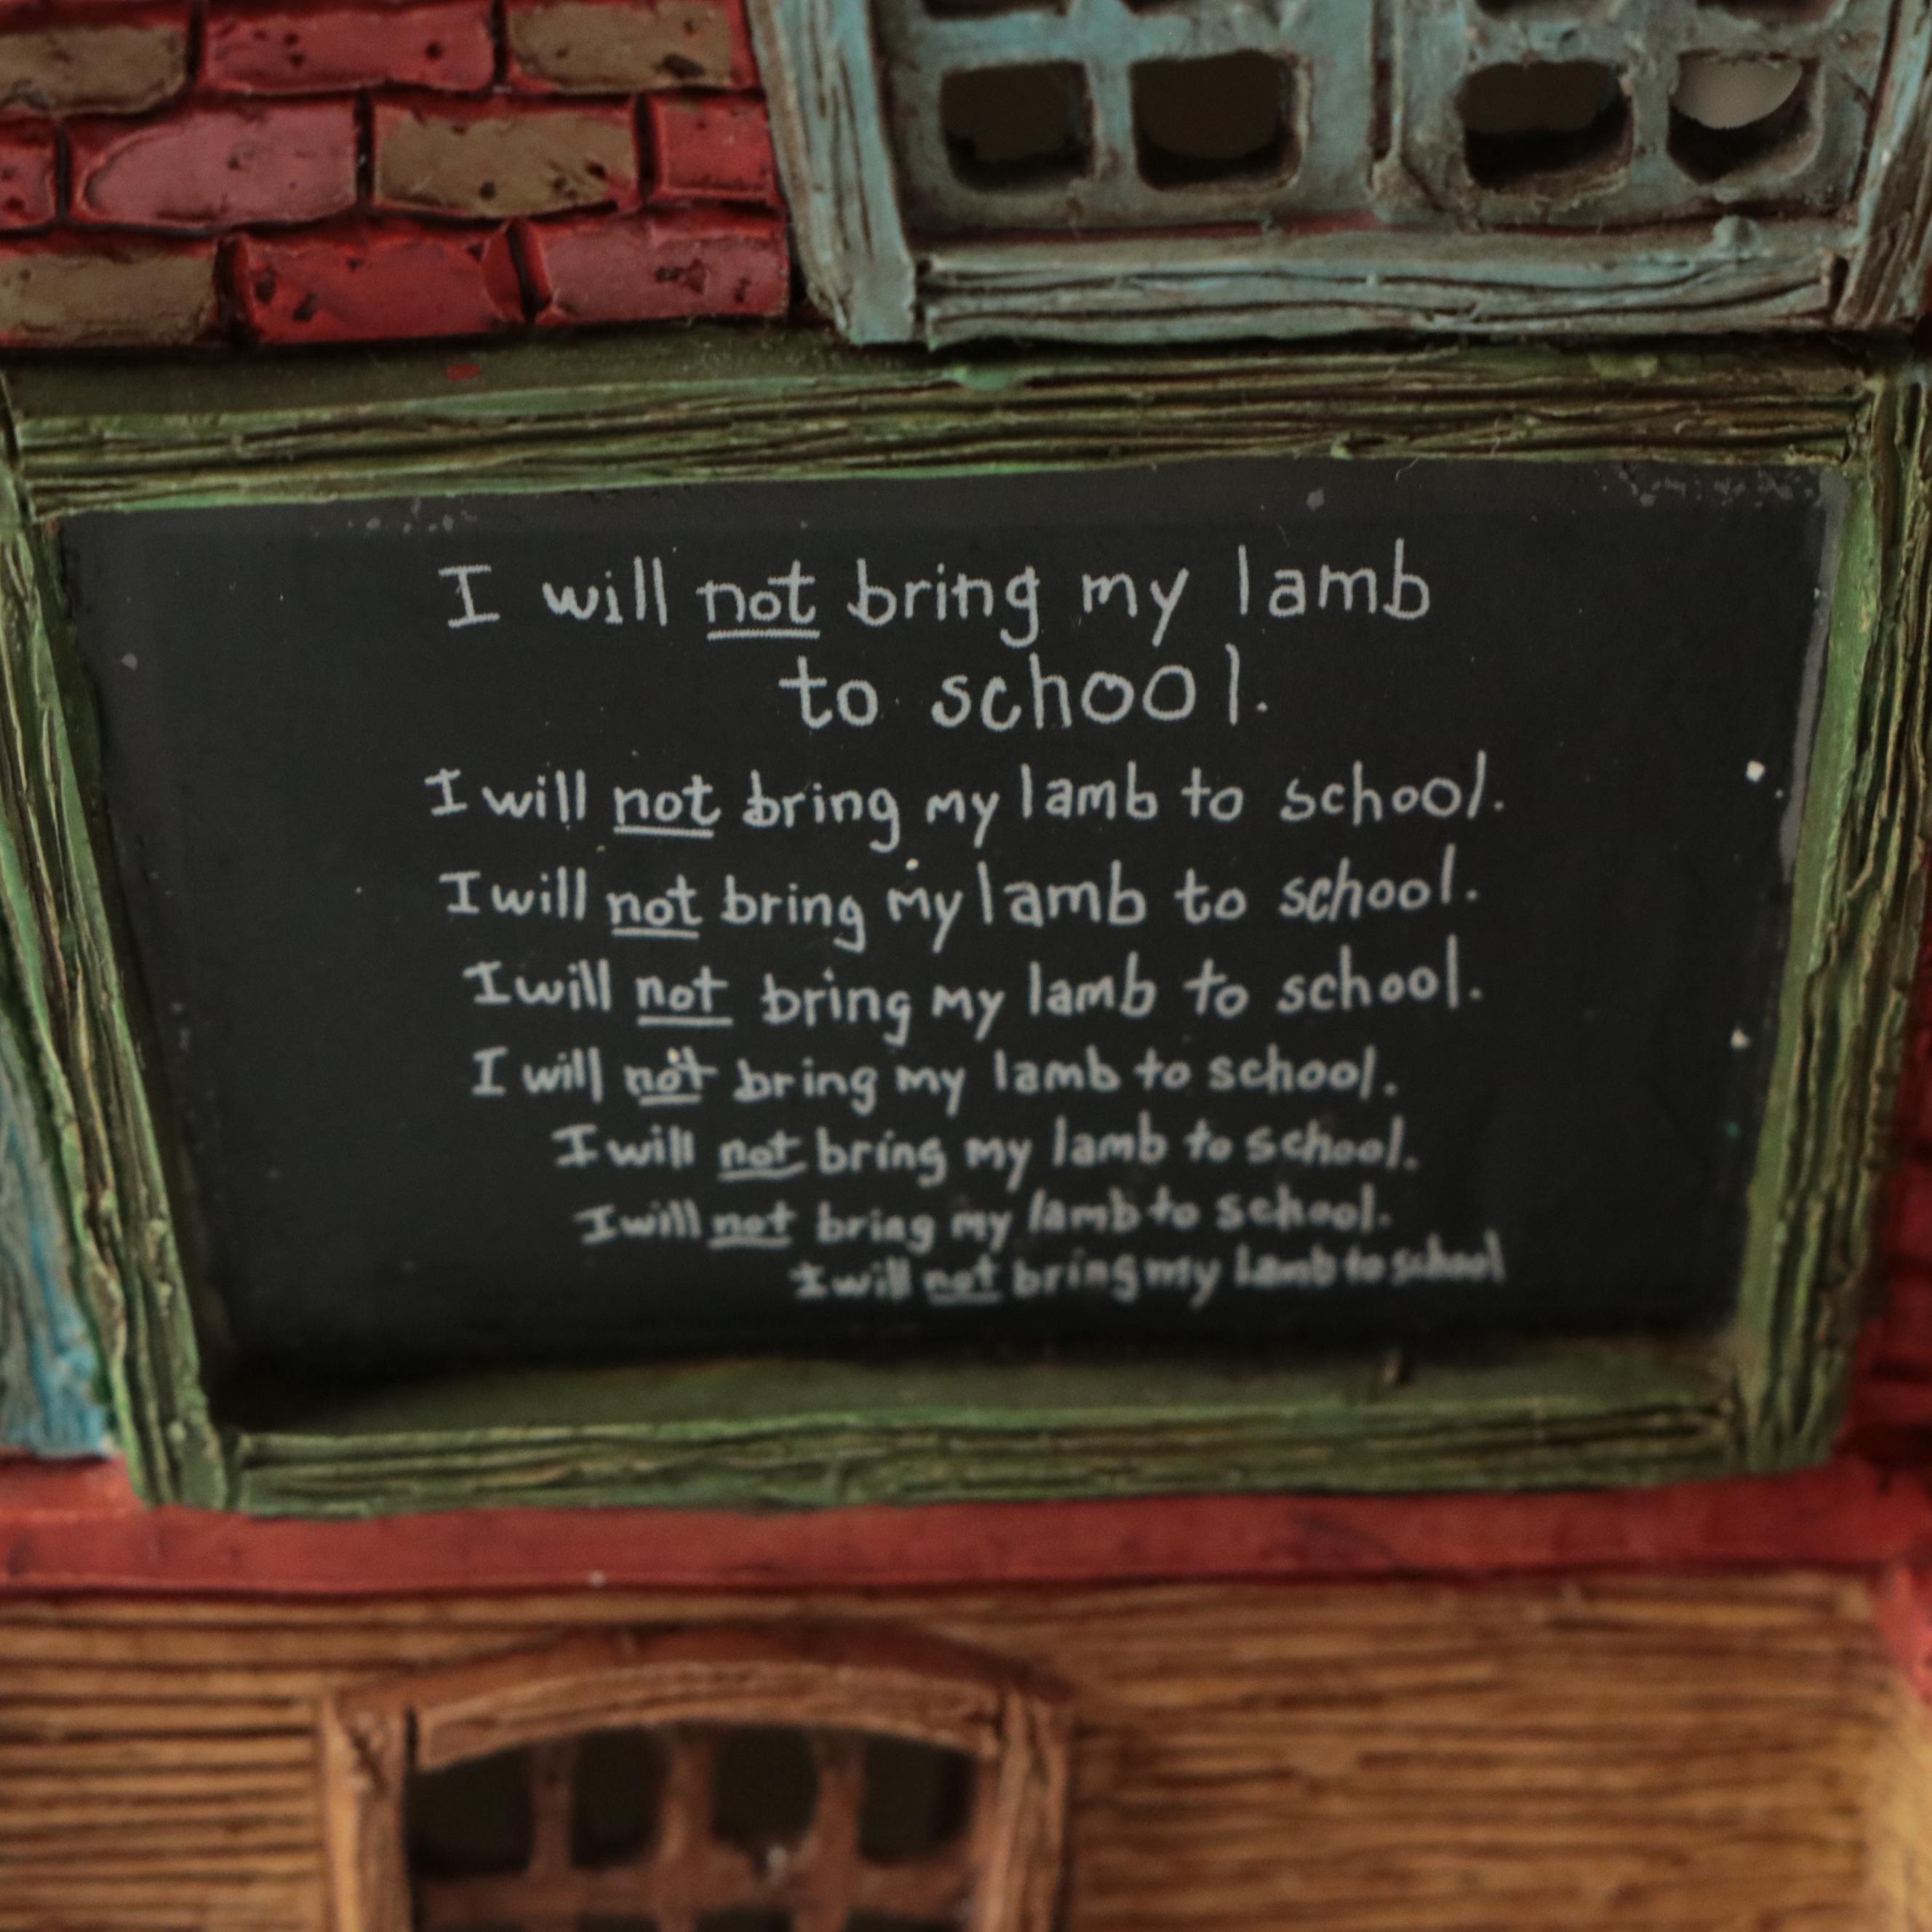 I will not bring my lamb
to school.
I will not bring my lamb to school.
I will not bring my lamb to school.
I will not bring my lamb to school.
I will not bring my lamb to school.
I will not bring my lamb to school.
I will not bring my lamb to school.
I will not bring my lamb to school